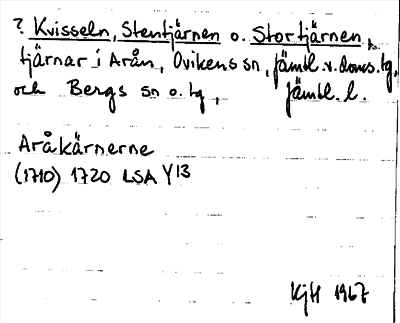 ? Kvisseln, Stentjärnen o. Stortjärnen,
tjärnar i Arån, Ovikens sn, Jämtl. v. doms. tg,
och Bergs sn o. tg, Jämtl. l.
Aråkärnerne
(1710) 1720 LSA Y13
KjH 1967